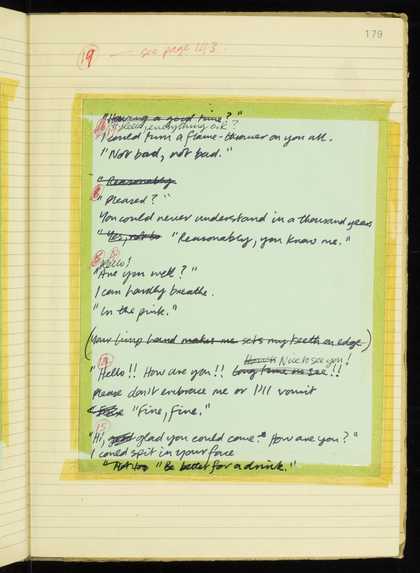 179
19 — see page 143.
"Having a good time?"
"Hello, everything o.k?
I could turn a flame-thrower on you all.
"Not bad, not bad."
"Reasonably
"Pleased?"
You could never understand in a thousand years
"Yes, not to "Reasonably, you know me."
Hello!
"Are you well?"
I can hardly breathe.
"In the pink."
(Your limp hand makes me sets my teeth on edge)
Nice to see you!
19
"Hello!! How are you!! Long time no see!!
please don't embrace me or I'll vomit
"Fine, fine."
15
"Hi, glad you could come." How are you?"
I could spit in your face
"Not too "Be better for a drink."